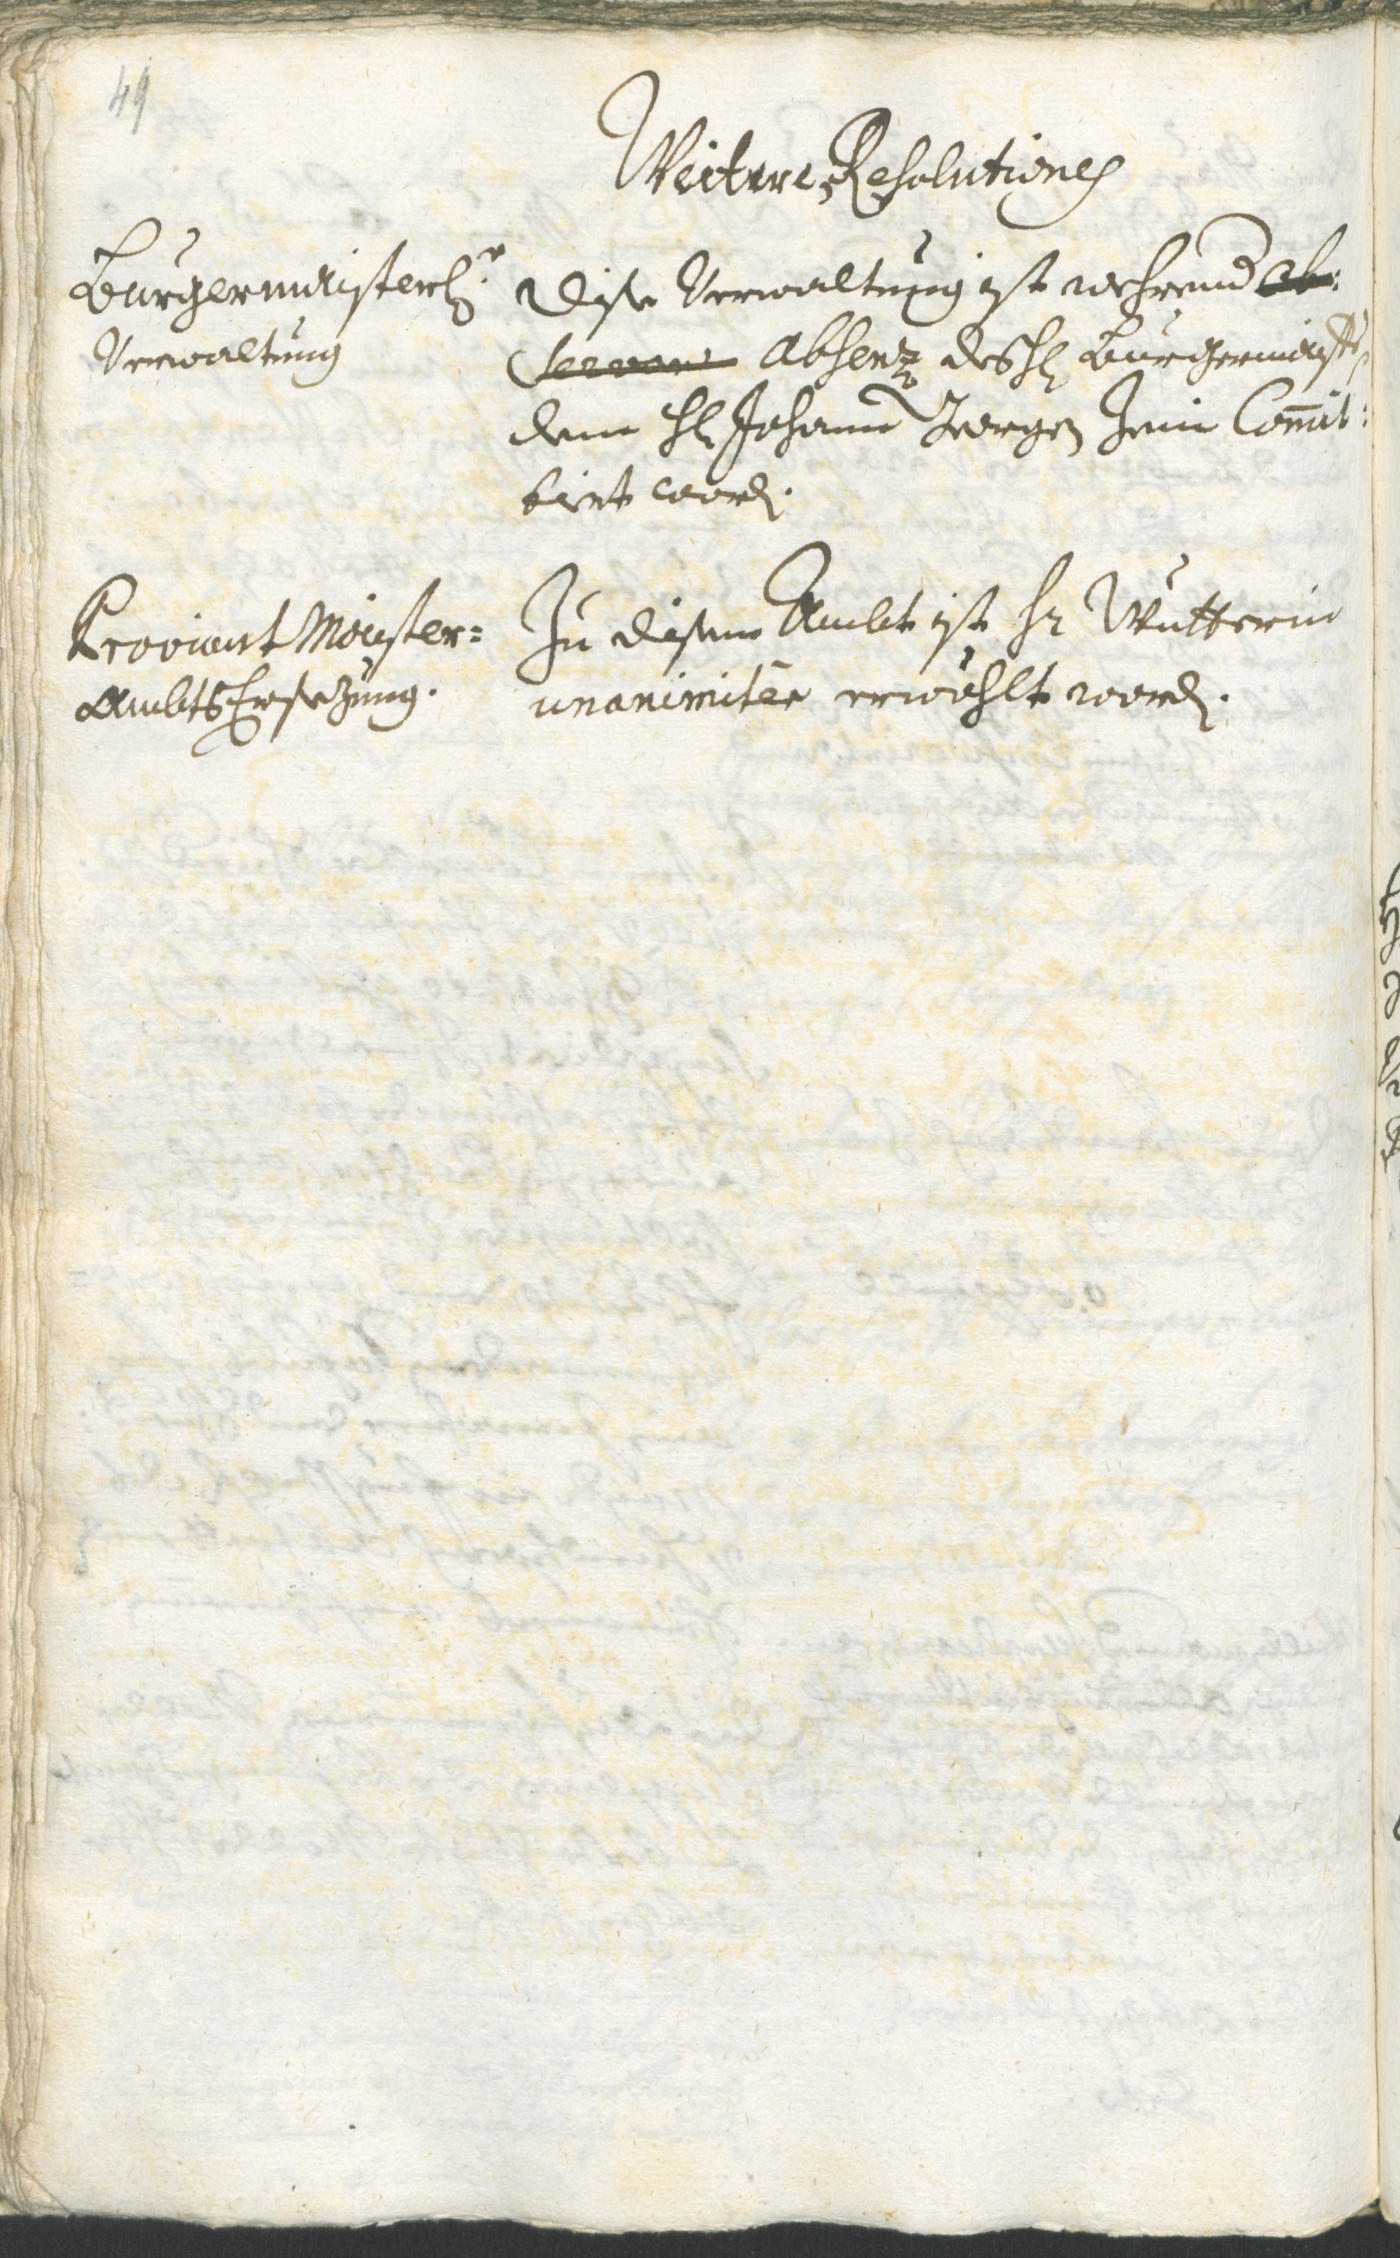 49
Weitere Resolutiones
Burgermaisterl:r
Verwaltung
Dise Verwaltung ist wehrend Ob:
servanz Absenz deß H Burgermaist:
dem H Johann Georgen Jenin Com̅it:
tirt word.
Proviant Maister=
Ambts Ersezung.
Zu disem Ambt ist Hr Wutterin
unanimiter erwöhlt word.